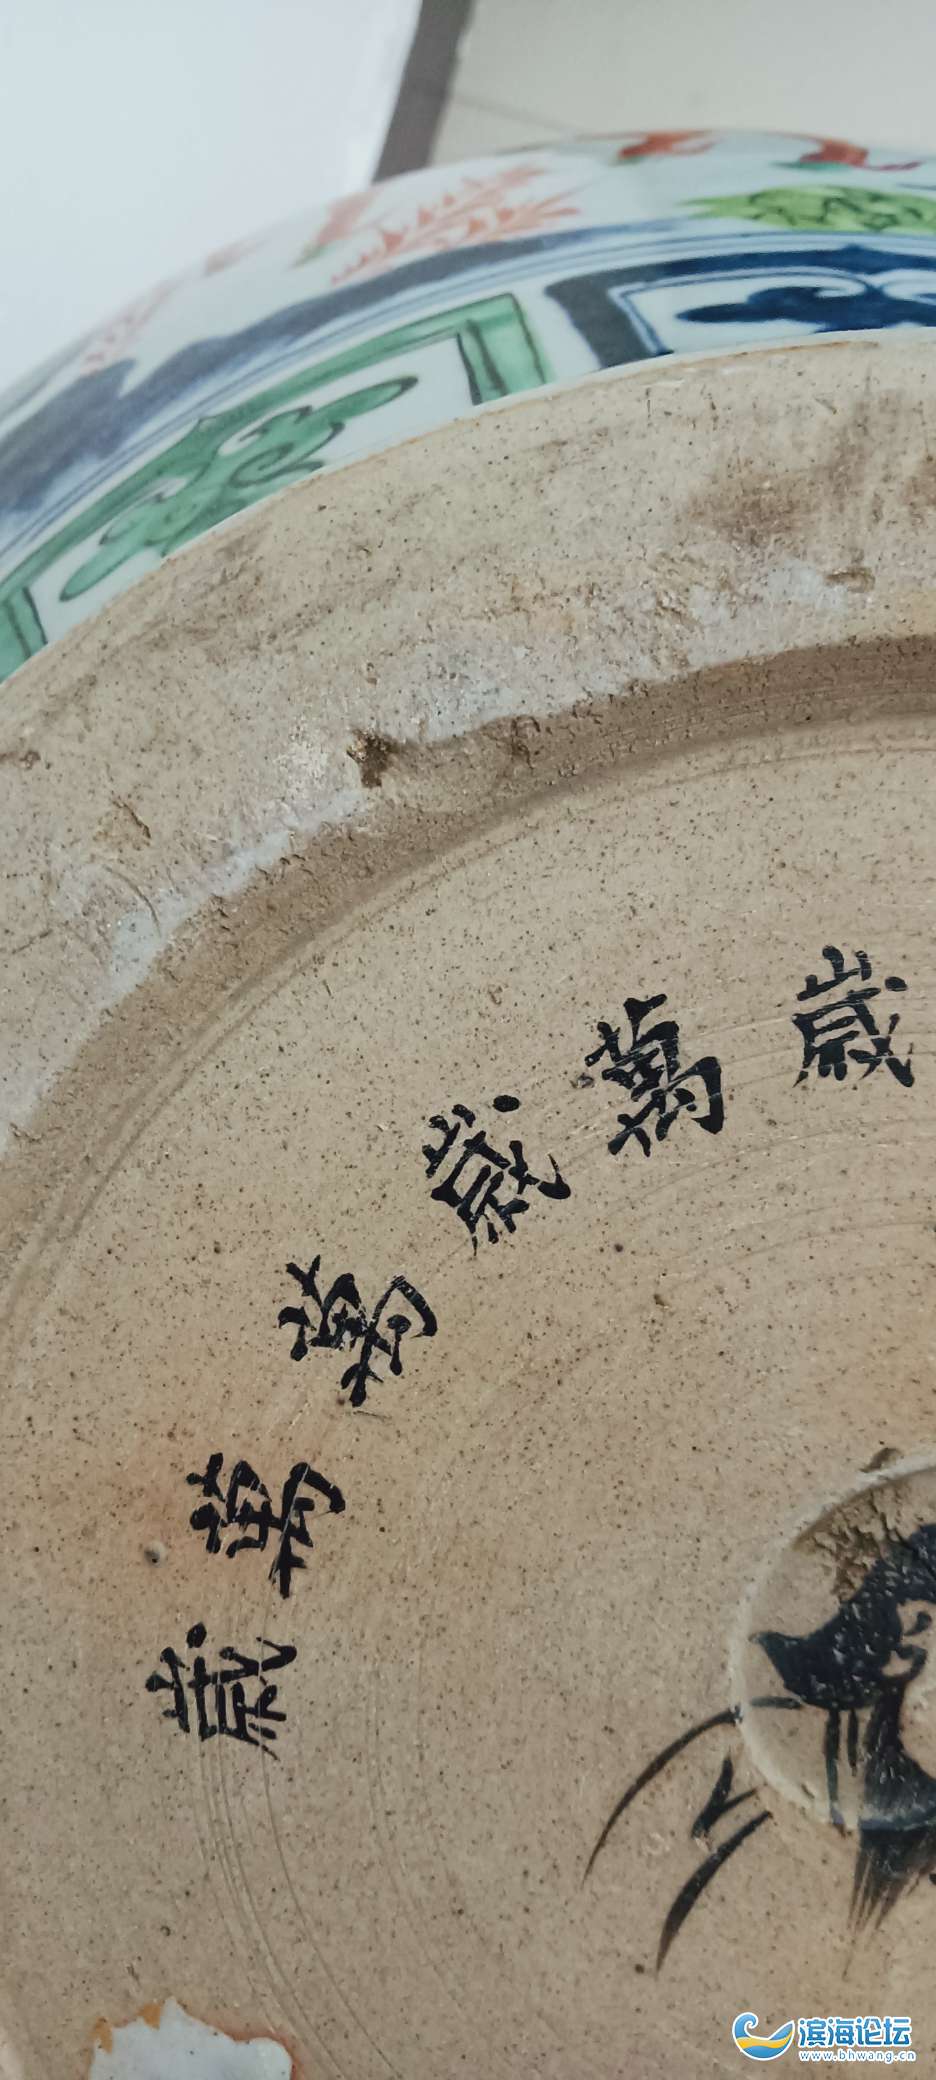 歲萬歲萬萬歲
滨海论坛
www.bhwang.cn